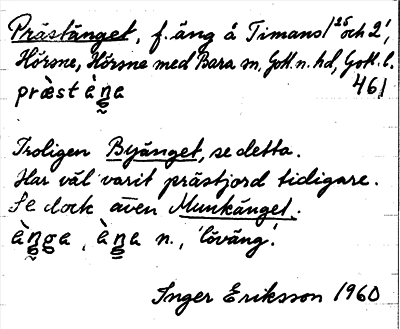 Prästänget, f. äng å Timans 1/25 och 2',
Hörsne, Hörsne med Bara sn, Gotl. n. hd, Gotl. l.
præ̀st ὲŋa 461
Troligen Byänget, se detta.
Har väl varit prästjord tidigare.
Se dock även Munkänget.
ὲŋga, ὲŋa n., 'löväng'.
Inger Eriksson 1960